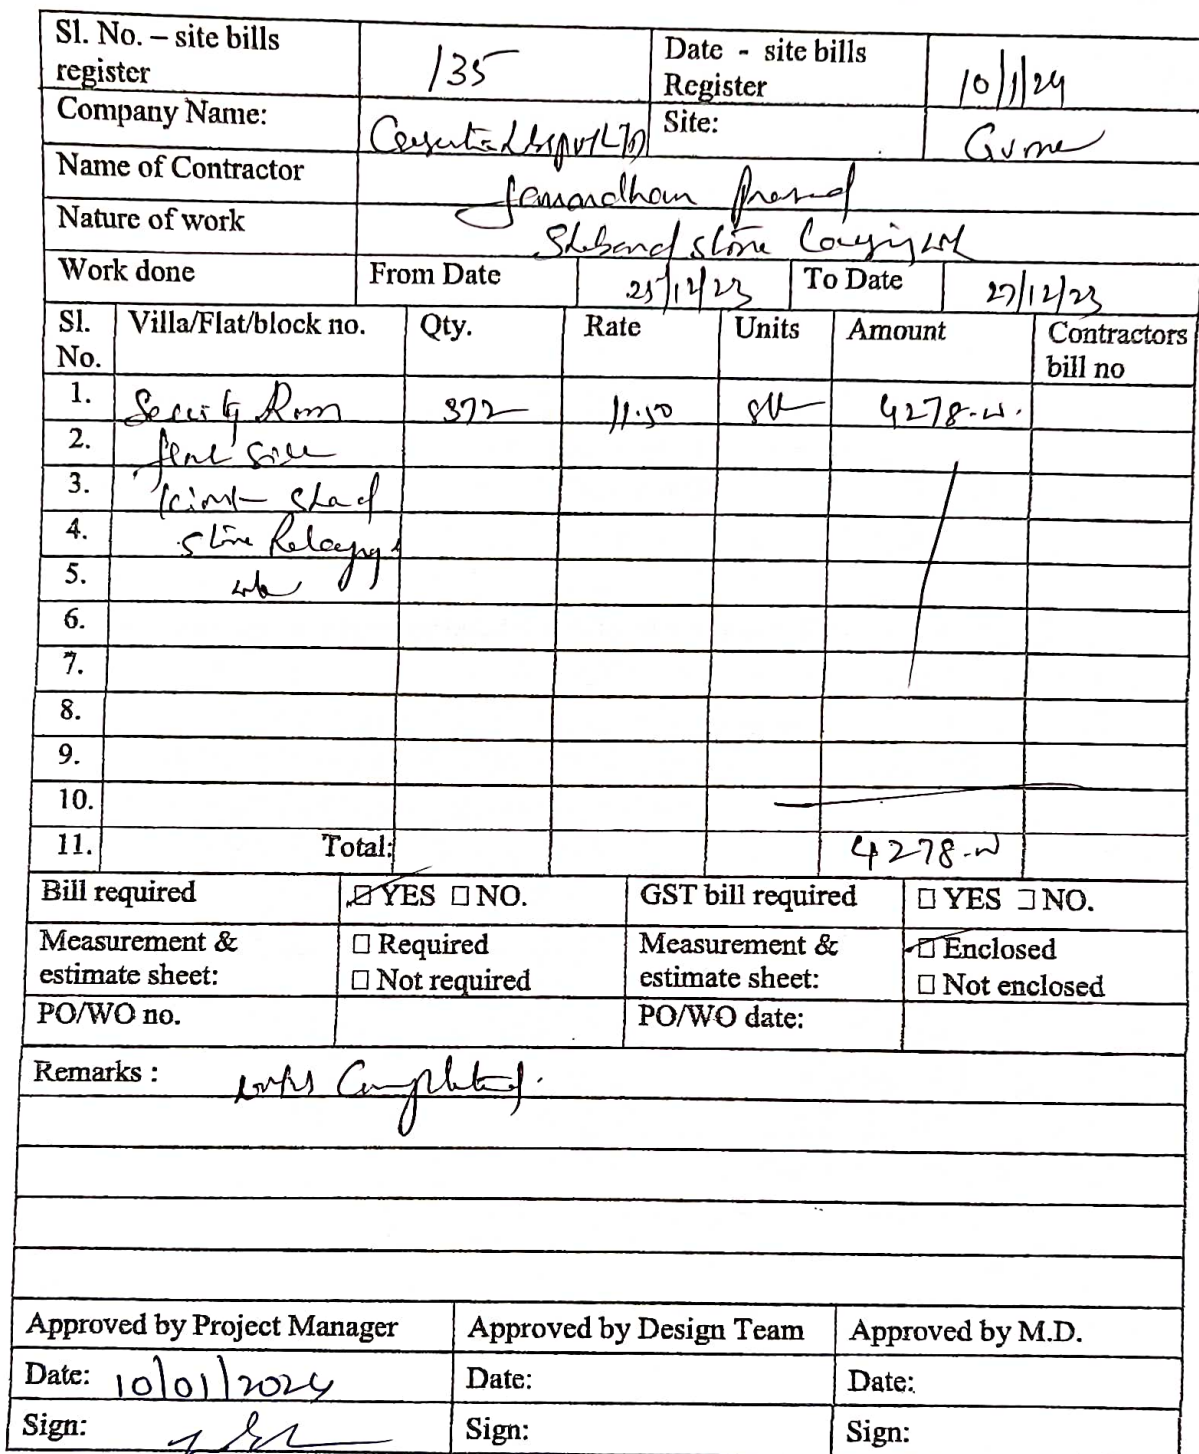 Sl. No. – site bills register 135 Date - site bills Register 10/1/24
Company Name: Site: Gvrne
Name of Contractor Janardhan Prasad
Nature of work stone Laying wk
Work done From Date 25/12/23 To Date 27/12/23
Sl. No. Villa/Flat/block no. Qty. Rate Units Amount Contractors bill no
1. Security Room 372 11.50 sft 4278-w.
2. side
3.
4. stone Relaying
5. wk
6.
7.
8.
9.
10.
11. Total: 4278-w
Bill required ☑ YES ☐ NO. GST bill required ☐ YES ☐ NO.
Measurement & estimate sheet: ☐ Required ☐ Not required Measurement & estimate sheet: ☑ Enclosed ☐ Not enclosed
PO/WO no. PO/WO date:
Remarks : works Completed.
Approved by Project Manager Approved by Design Team Approved by M.D.
Date: 10/01/2024 Date: Date:
Sign: Sign: Sign: